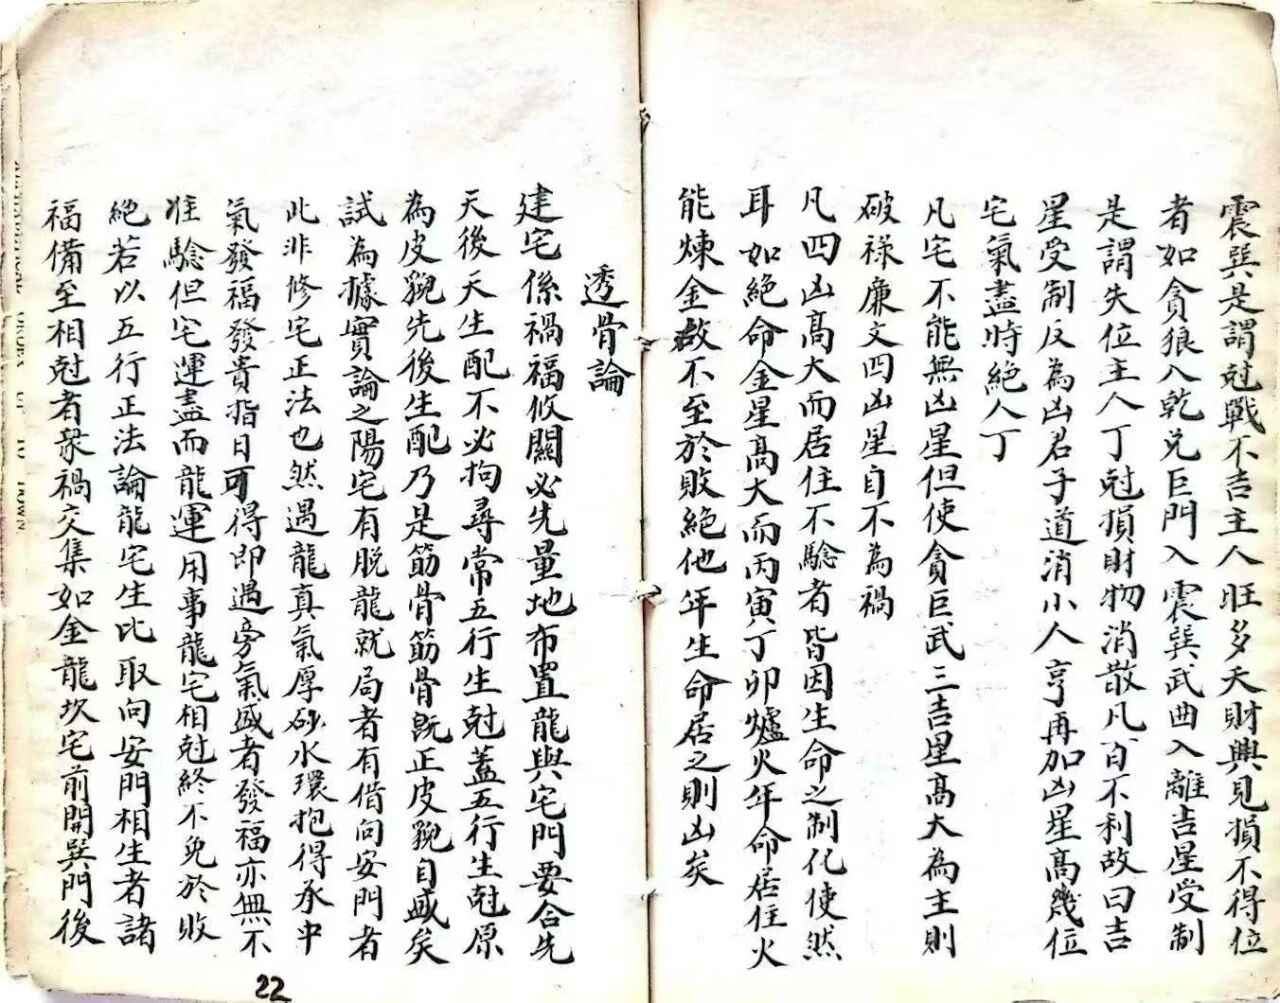 震巽是謂尅戰不吉主人旺多天財興見損不得位
者如貪狼入乾兑巨門入震巽武曲入離吉星受制
是謂失位主人丁尅損財物消散凡百不利故曰吉
星受制反為凶君子道消小人亨再加凶星高幾位
宅氣盡時絕人丁
凡宅不能無凶星但使貪巨武三吉星高大為主則
破祿廉文四凶星自不為禍
凡四凶高大而居住不驗者皆因生命之制化使然
耳如絕命金星高大而丙寅丁卯爐火年命居住火
能煉金故不至於敗絕他年生命居之則凶矣
透骨論
建宅係禍福攸關必先量地布置龍與宅門要合先
天後天生配不必拘尋常五行生尅蓋五行生尅原
為皮貌先後生配乃是筋骨筋骨既正皮貌自盛矣
試為據實論之陽宅有脱龍就局者有借向安門者
此非修宅正法也然遇龍真氣厚砂水環抱得承中
氣發福發貴指日可得即遇旁氣盛者發福亦無不
准驗但宅運盡而龍運用事龍宅相尅終不免於敗
絕若以五行正法論龍宅生比取向安門相生者諸
福備至相尅者衆禍交集如金龍坎宅前開巽門後
22